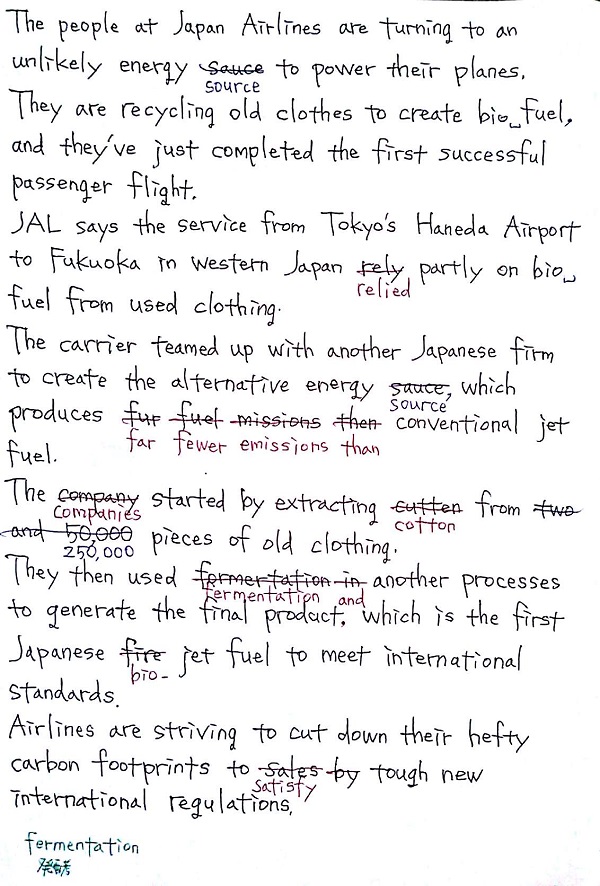 The people at Japan Airlines are turning to an
unlikely energy sauce to power their planes.
source
They are recycling old clothes to create bio fuel,
and they've just completed the first successful
passenger flight.
JAL says the service from Tokyo's Haneda Airport
to Fukuoka in western Japan rely partly on bio
relied
fuel from used clothing.
The carrier teamed up with another Japanese firm
to create the alternative energy sauce, which
source
produces fur fuel missions then conventional jet
far fewer emissions than
fuel.
The company started by extracting cutten from two
companies cotton
and 50,000 pieces of old clothing.
250,000
They then used fermertation in another processes
fermentation and
to generate the final product, which is the first
Japanese fire jet fuel to meet international
bio-
standards.
Airlines are striving to cut down their hefty
carbon footprints to sales by tough new
satisfy
international regulations,
fermentation
発酵